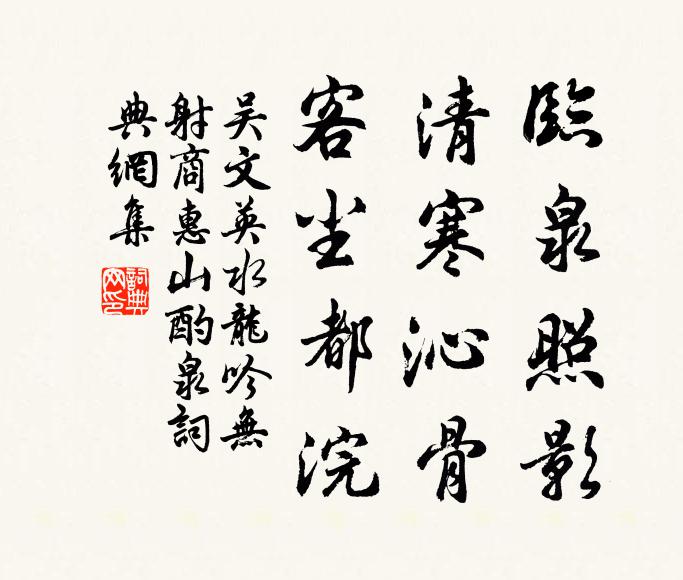 臨泉照影
清寒沁骨
客尘都浣
吴文英水龍吟無
射商惠山酌泉詞
典網集
詞典
网印